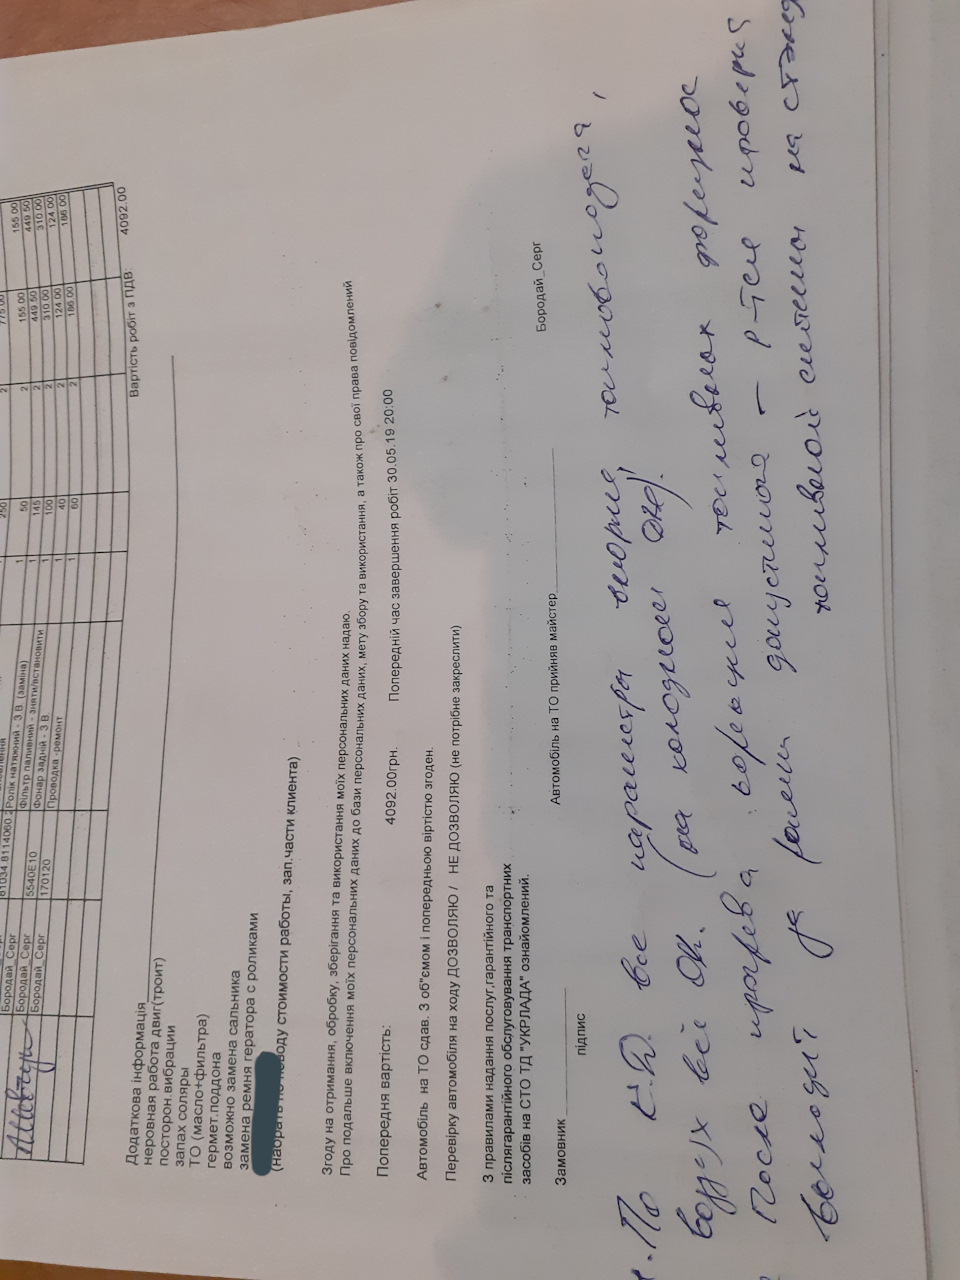 775.00
250 2
Бородай_Серг 81034 8114060 2 Ролік натяжний - З В (заміна) 1 50 2 155.00 155.00
Бородай_Серг 5540E10 Фільтр паливний - зняти/встановити 1 145 2 449.50 449.50
Бородай_Серг 170120 Фонар задній - З В 1 100 2 310.00 310.00
Проводка -ремонт 1 40 2 124.00 124.00
1 60 2 186.00 186.00
Вартість робіт з ПДВ: 4092.00
Додаткова інформація
неровная работа двиг(троит)
посторон.вибрации
запах соляры
ТО (масло+фильтра)
гермет.поддона
возможно замена сальника
замена ремня гератора с роликами
воду стоимости работы, зап.части клиента)
Згоду на отримання, обробку, зберігання та використання моїх персональних даних надаю.
Про подальше включення моїх персональних даних до бази персональних даних, мету збору та використання, а також про свої права повідомлений
Попередня вартість: 4092.00грн. Попередній час завершення робіт 30.05.19 20:00
Автомобіль на ТО сдав. З об"ємом і попередньою віртістю згоден.
Перевірку автомобіля на ходу ДОЗВОЛЯЮ / НЕ ДОЗВОЛЯЮ (не потрібне закреслити)
З правилами надання послуг,гарантійного та
післягарантійного обслуговування транспортних
засобів на СТО ТД "УКРЛАДА" ознайомлений.
Замовник Автомобіль на ТО прийняв майстер Бородай_Серг
підпис
По К.Д. все параметра топливоподача,
воздух всё Ок. (на холодном ДВС)!
После прогрева : топливок форсунок
выходит за рамки допустимого — р-тся проверить
топливной системы на стэнд